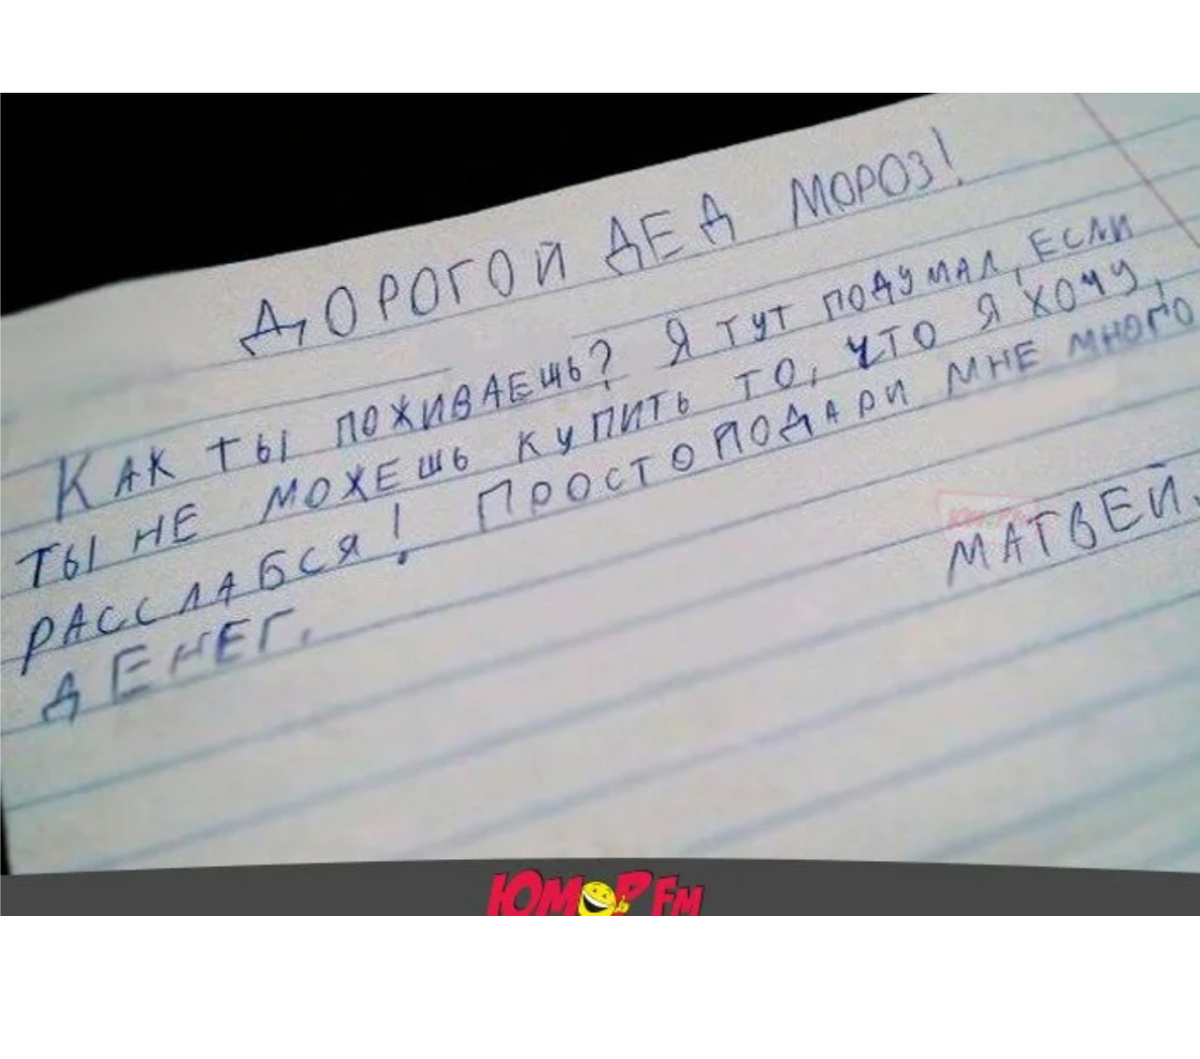 ДОРОГОЙ ДЕД МОРОЗ!
КАК ТЫ ПОЖИВАЕШЬ? Я ТУТ ПОДУМАЛ, ЕСЛИ
ТЫ НЕ МОЖЕШЬ КУПИТЬ ТО, ЧТО Я ХОЧУ,
РАССЛАБСЯ! ПРОСТО ПОДАРИ МНЕ МНОГО
ДЕНЕГ.
МАТВЕЙ.
ЮМОР FM